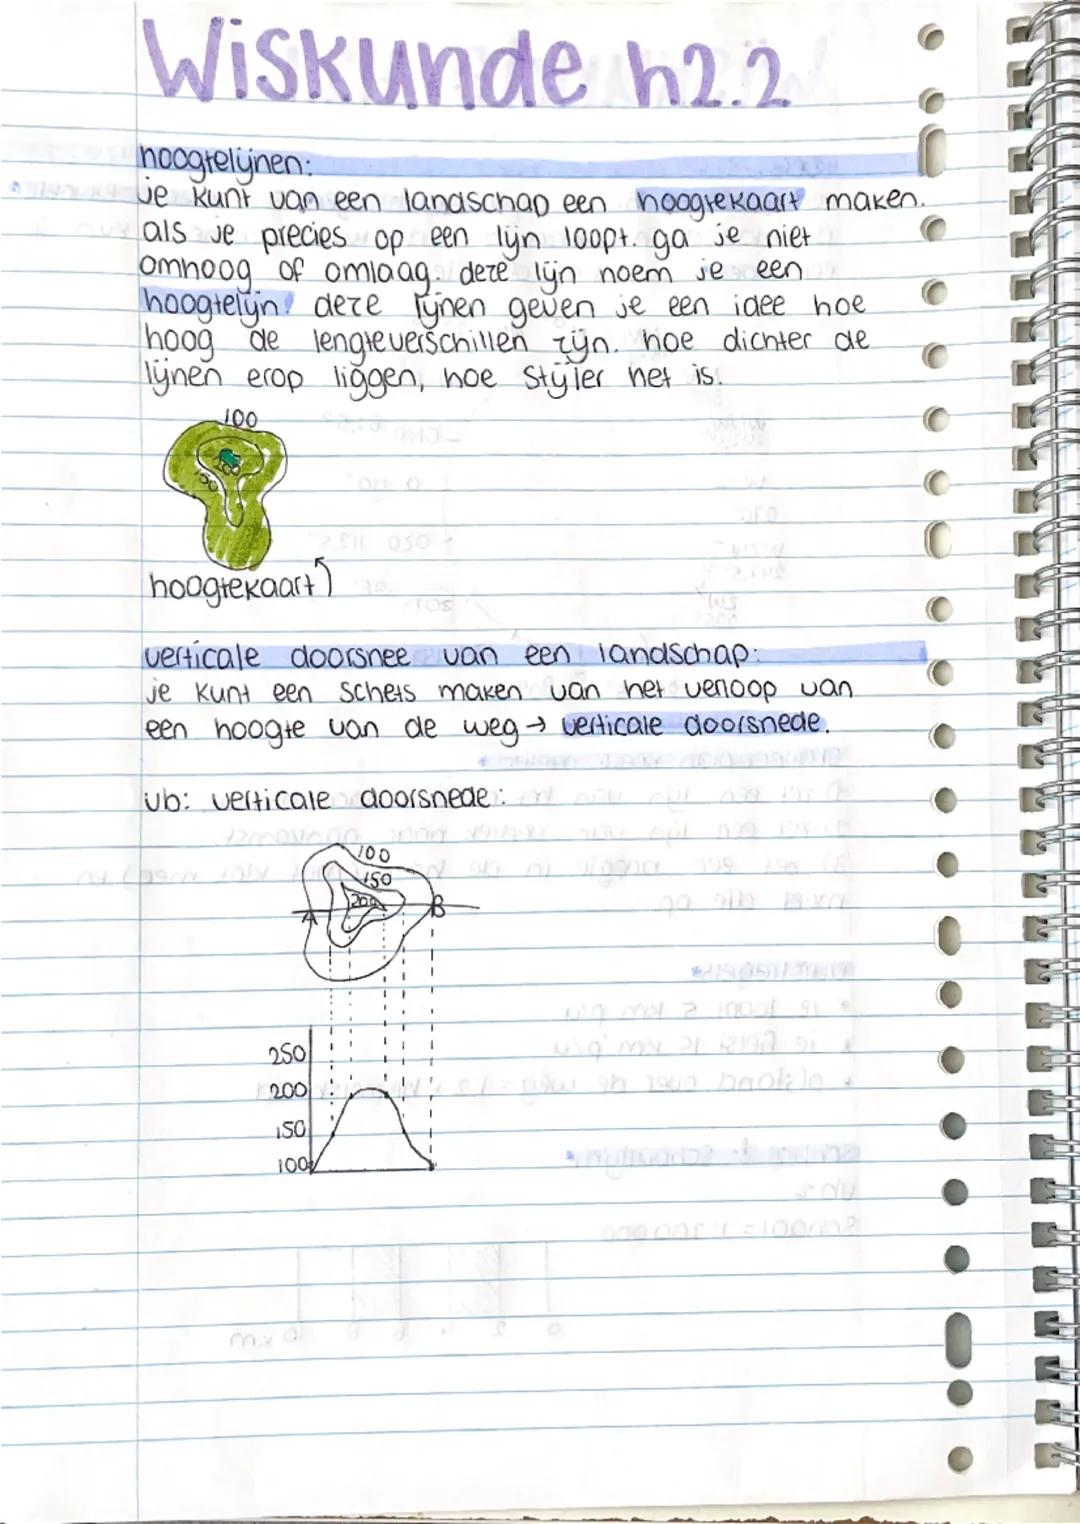 Wiskunde h2.2
hoogtelijnen:
je kunt van een landschap een hoogtekaart maken.
als je precies op een lijn loopt. ga je niet
omhoog of omlaag. deze lijn noem je een
hoogtelijn! deze lijnen geven je een idee hoe
hoog de lengteverschillen zijn. hoe dichter de
lijnen erop liggen, hoe stijler het is.
100
200
150
hoogtekaart
verticale doorsnee van een landschap:
je kunt een schets maken van het verloop van
een hoogte van de weg → verticale doorsnede.
vb: verticale doorsnede:
100
150
A 200 B
250
200
150
100